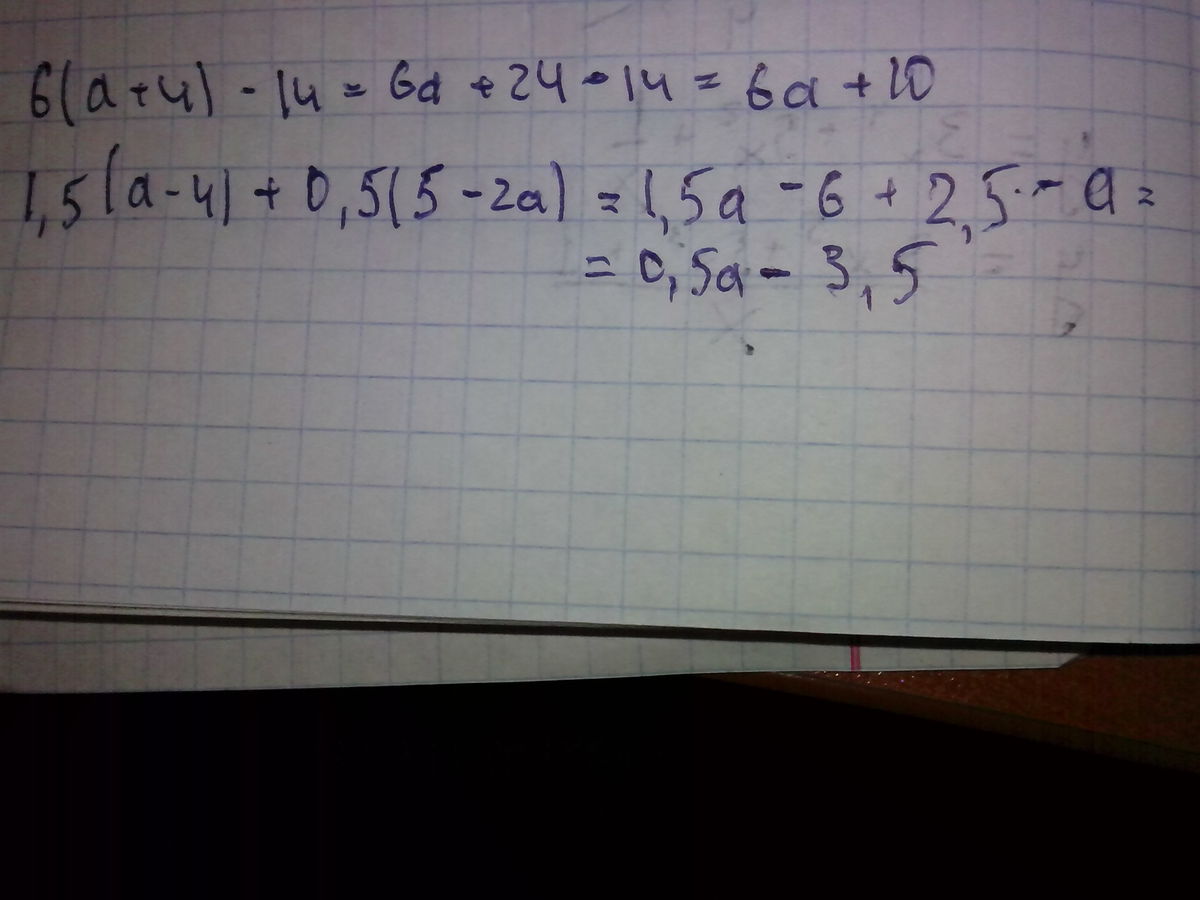 6(a+4) - 14 = 6a + 24 - 14 = 6a + 10
1,5(a-4) + 0,5(5-2a) = 1,5a - 6 + 2,5 - a =
= 0,5a - 3,5